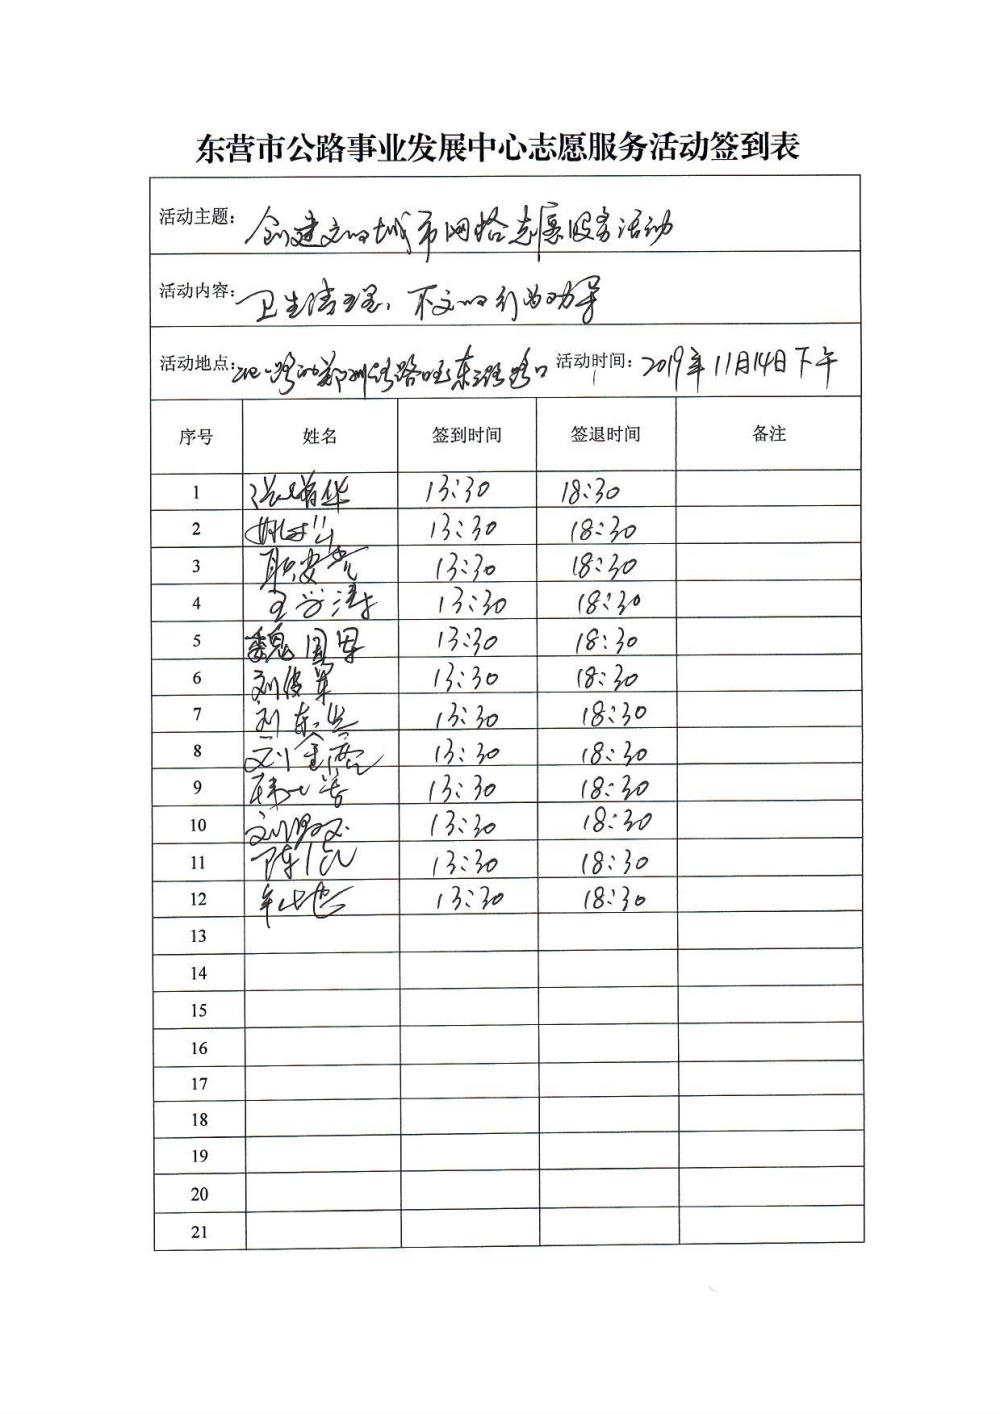 东营市公路事业发展中心志愿服务活动签到表
活动主题: 创建文明城市网格志愿服务活动
活动内容: 卫生清理、不文明行为劝导
活动地点: 北一路 郑州路路 东三路路口 活动时间: 2019年11月14日下午
序号 姓名 签到时间 签退时间 备注
1 13:30 18:30
2 13:30 18:30
3 13:30 18:30
4 王学涛 13:30 18:30
5 魏国军 13:30 18:30
6 刘俊军 13:30 18:30
7 刘东 13:30 18:30
8 刘金霞 13:30 18:30
9 13:30 18:30
10 刘 13:30 18:30
11 陈 13:30 18:30
12 13:30 18:30
13
14
15
16
17
18
19
20
21